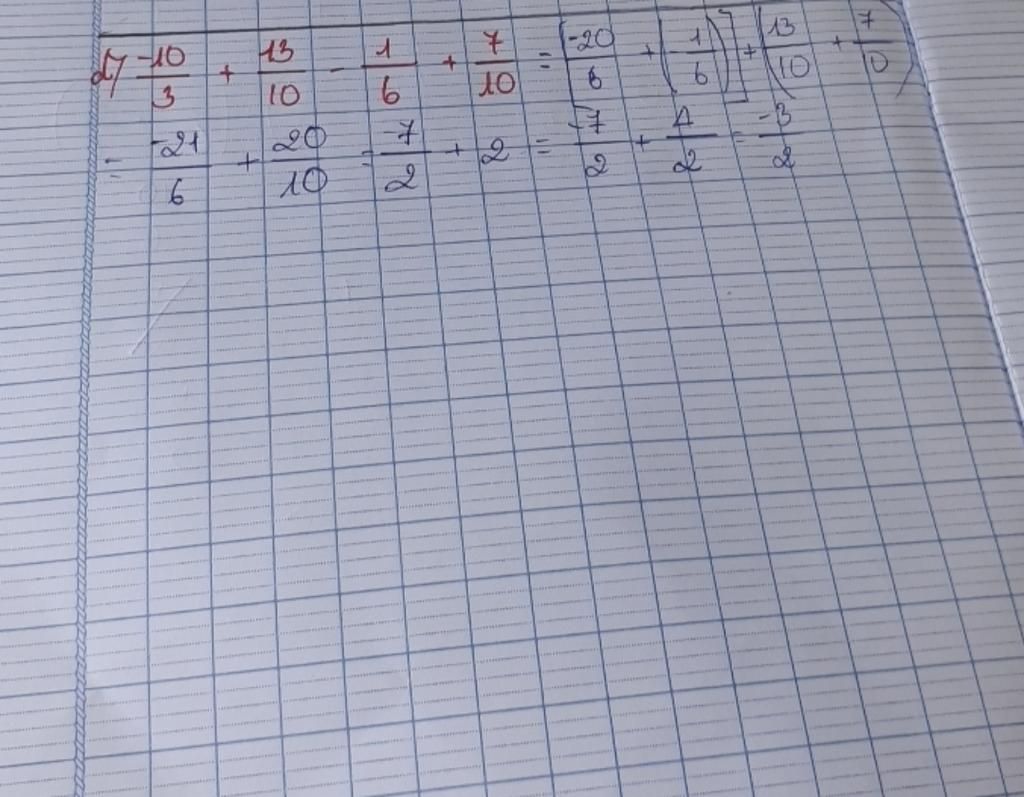 d) -10/3 + 13/10 - 1/6 + 7/10 = [-20/6 + (-1/6)] + (13/10 + 7/10)
= -21/6 + 20/10 = -7/2 + 2 = -7/2 + 4/2 = -3/2